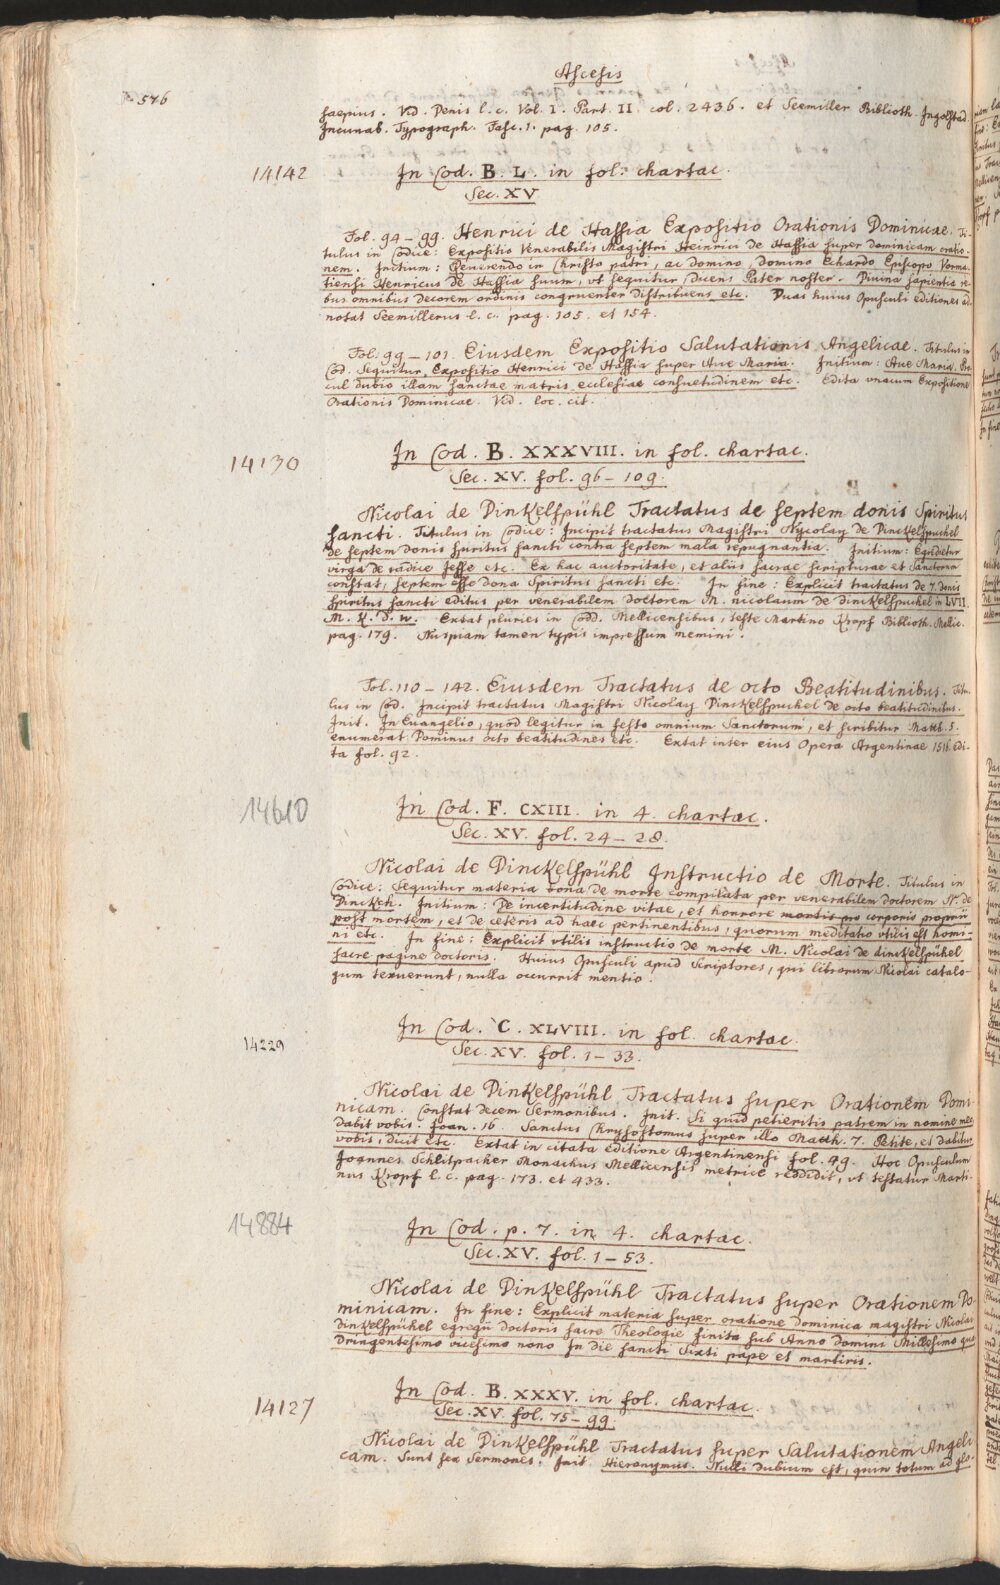 Ascesis
576
saepius. Vid. Denis l. c. Vol. I. Part. II. col. 2436. et Seemiller Biblioth. Ingolstad.
Incunab. Typograph. Fasc. 1. pag. 105.
14142
In Cod. B. L. in fol. chartac.
Sec. XV
Fol. 94–99. Henrici de Hassia Expositio Orationis Dominicae. Ti-
tulus in Codice: Expositio Venerabilis Magistri Heinrici de Hassia super dominicam oratio-
nem. Initium: Reverendo in Christo patri, ac domino, domino Echardo Episcopo Worma-
tiensi Henricus de Hassia suum, vt sequitur, ducens Pater noster. Divina sapientia re-
bus omnibus decorem ordinis congruenter distribuens etc. Duas huius Opusculi editiones ad-
notat Seemillerus l. c. pag. 105. et 154.
Fol. 99–101. Eiusdem Expositio Salutationis Angelicae. Titulus in
Cod. Sequitur Expositio Henrici de Hassia super Ave Maria. Initium: Ave Maria. Pro-
cul dubio illam sanctae matris ecclesiae consuetudinem etc. Edita vnacum Expositione
Orationis Dominicae. Vid. loc. cit.
14130
In Cod. B. XXXVIII. in fol. chartac.
Sec. XV. fol. 96–109.
Nicolai de Dinkelspühl Tractatus de septem donis Spiritus
sancti. Titulus in Codice: Incipit tractatus Magistri Nycolay de Dinckelspuchel
de septem donis spiritus sancti contra septem mala repugnantia. Initium: Egredietur
virga de radice Jesse etc. Ex hac auctoritate, et aliis sacrae scripturae et Sanctorum
constat, septem esse dona Spiritus sancti etc. In fine: Explicit tractatus de 7. donis
spiritus sancti editus per venerabilem doctorem M. nicolaum de dinckelspuchel in LVII.
M. K. d. w. Extat pluries in Codd. Mellicensibus, teste Martino Kropf Biblioth. Mellic.
pag. 179. Nuspiam tamen typis impressum memini.
Fol. 110–142. Eiusdem Tractatus de octo Beatitudinibus. Titu-
lus in Cod. Incipit tractatus Magistri Nicolay Dinckelspuchel de octo beatitudinibus.
Init. In Euangelio, quod legitur in festo omnium Sanctorum, et scribitur Matth. 5.
enumerat Dominus octo beatitudines etc. Extat inter eius Opera Argentinae 1516. edi-
ta fol. 92.
14610
In Cod. F. CXIII. in 4. chartac.
Sec. XV. fol. 24–28.
Nicolai de Dinckelspühl Instructio de Morte. Titulus in
Codice: Sequitur materia bona de morte compilata per venerabilem doctorem N. de
Dinckch. Initium: De incertitudine vitae, et horrore mortis pro corporis proprii
post mortem, et de ceteris ad haec pertinentibus, quorum meditatio vtilis est homi-
ni etc. In fine: Explicit vtilis instructio de morte M. Nicolai de dinckelspühel
sacre pagine doctoris. Huius Opusculi apud Scriptores, qui librorum Nicolai catalo-
gum texuerunt, nulla occurrit mentio.
14229
In Cod. C. XLVIII. in fol. chartac.
Sec. XV. fol. 1–33.
Nicolai de Dinkelspühl Tractatus super Orationem Domi-
nicam. Constat decem Sermonibus. Init. Si quid petieritis patrem in nomine meo
dabit vobis. Joan. 16. Sanctus Chrysostomus super illo Matth. 7. Petite, et dabitur
vobis, dicit etc. Extat in citata editione Argentinensi fol. 49. Hoc Opusculum
Joannes Schlitpacher Monachus Mellicensis metrice reddidit, vt testatur Marti-
nus Kropf l. c. pag. 173. et 433.
14884
In Cod. p. 7. in 4. chartac.
Sec. XV. fol. 1–53.
Nicolai de Dinkelspühl Tractatus super Orationem Do-
minicam. In fine: Explicit materia super oratione dominica magistri Nicolai
dinkelspühel egregii doctoris sacre Theologie finita sub Anno domini Millesimo qua-
dringentesimo vicesimo nono In die sancti Sixti pape et martiris.
14127
In Cod. B. XXXV. in fol. chartac.
Sec. XV. fol. 75–99.
Nicolai de Dinkelspühl Tractatus super Salutationem Angeli-
cam. Sunt sex Sermones. Init. Hieronymus. Nulli dubium est, quin totum ad glo-